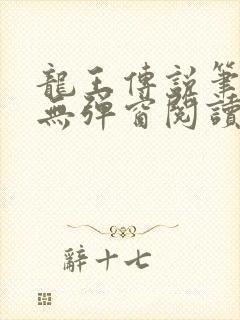 龍王傳說筆
無彈窗閱讀
辭十七